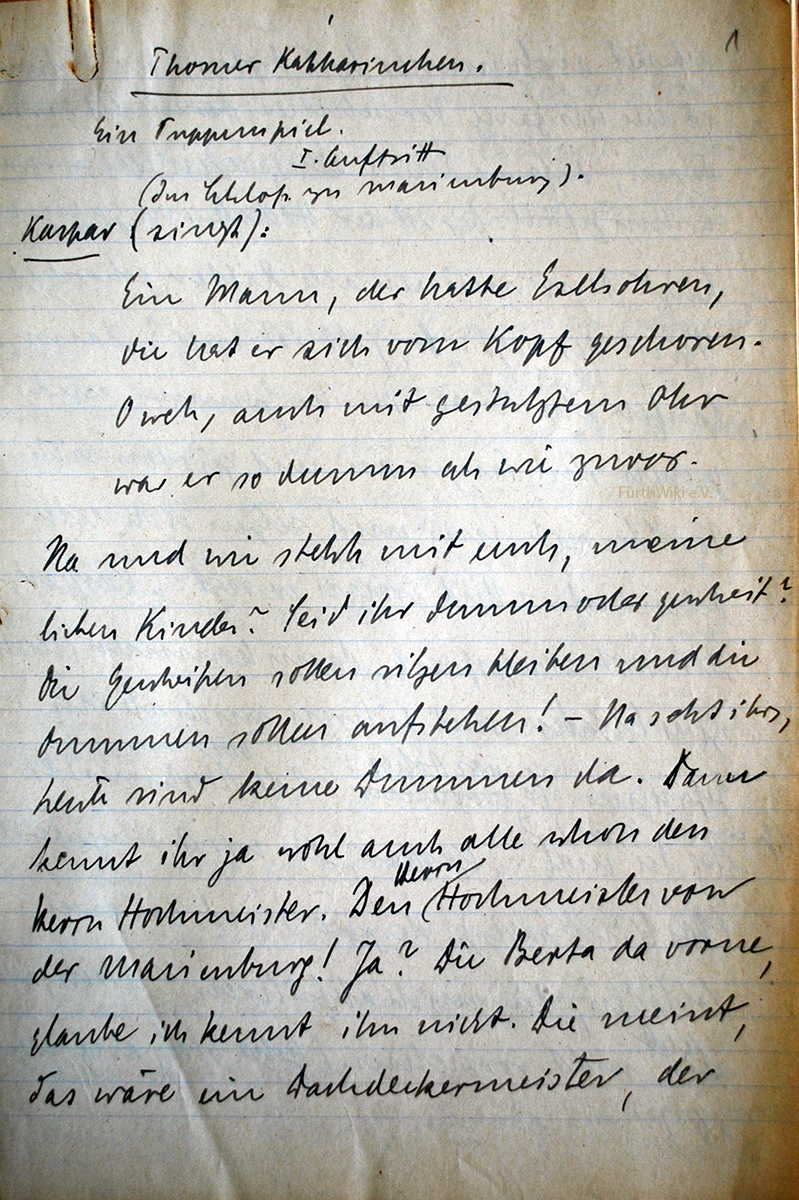 1
Thorner Katharinchen.
Ein Puppenspiel.
I. Auftritt
(Im Schloß zu Marienburg).
Kaspar (singt):
Ein Mann, der hatte Eselsohren,
die hat er sich vom Kopf geschoren.
O weh, auch mit gestutztem Ohr
war er so dumm als wie zuvor.
FürthWiki e.V.
Na und wie stehts mit euch, meine
lieben Kinder? Seid ihr dumm oder gescheit?
Die Gescheiten sollen sitzen bleiben und die
Dummen sollen aufstehen! – Na seht ihrs,
heute sind keine Dummen da. Dann
kennt ihr ja wohl auch alle schon den
Herrn Hochmeister. Den Herrn Hochmeister von
der Marienburg! Ja? Die Berta da vorne,
glaube ich kennt ihn nicht. Die meint,
das wäre ein Dachdeckermeister, der